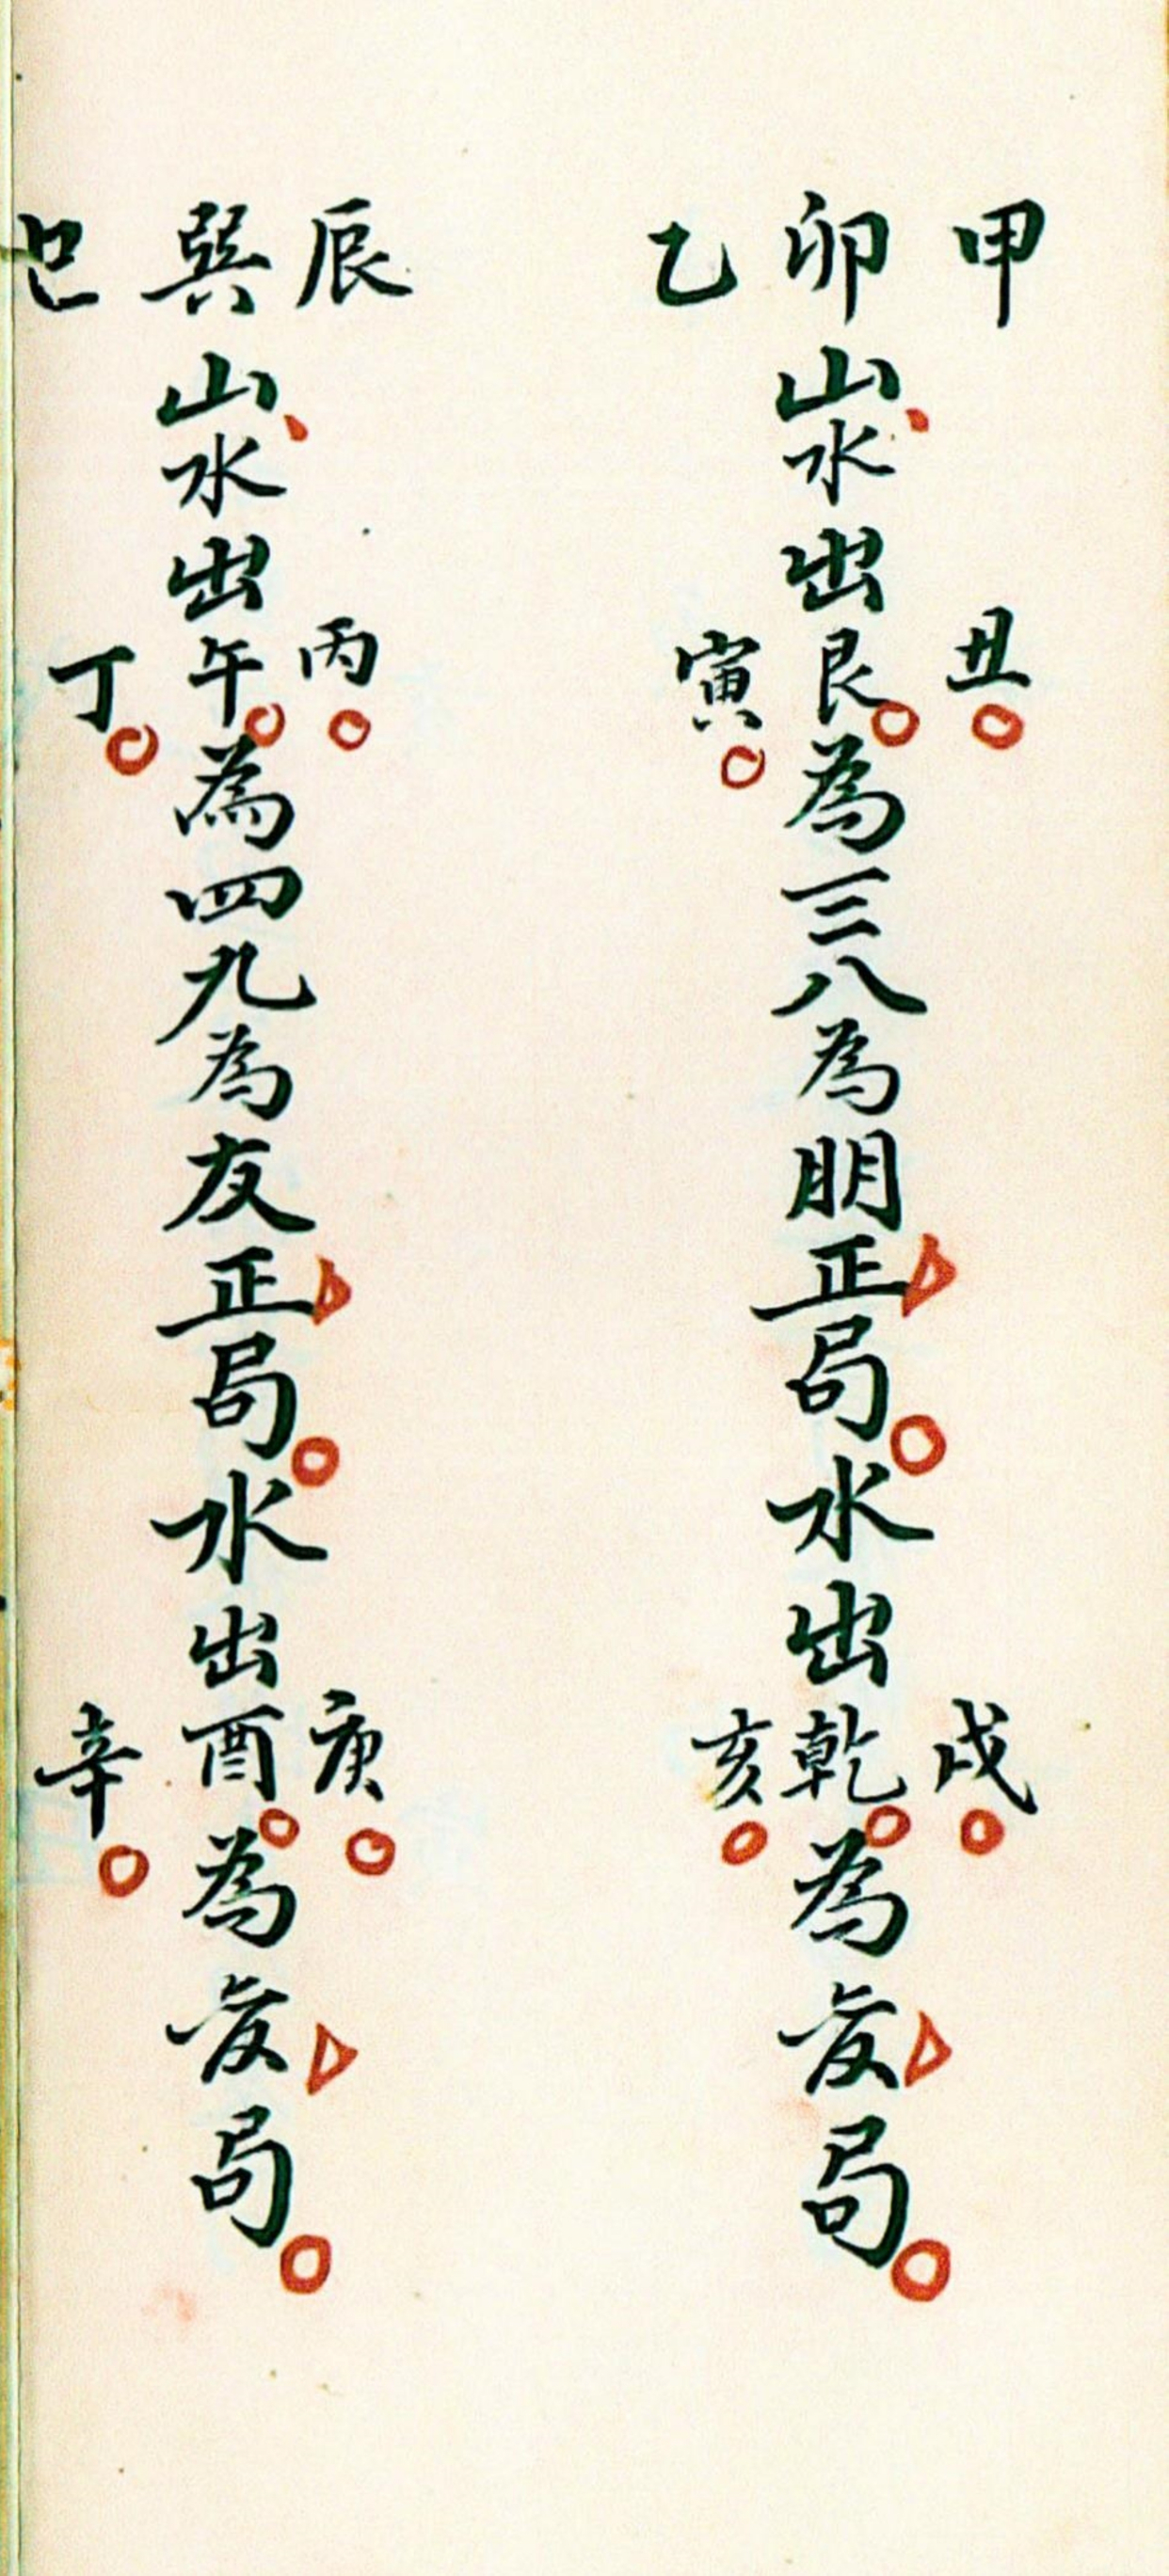 甲卯乙山水出丑艮寅為三八為朋正局水出戌乾亥為变局
辰巽巳山水出丙午丁為四九為友正局水出庚酉辛為变局